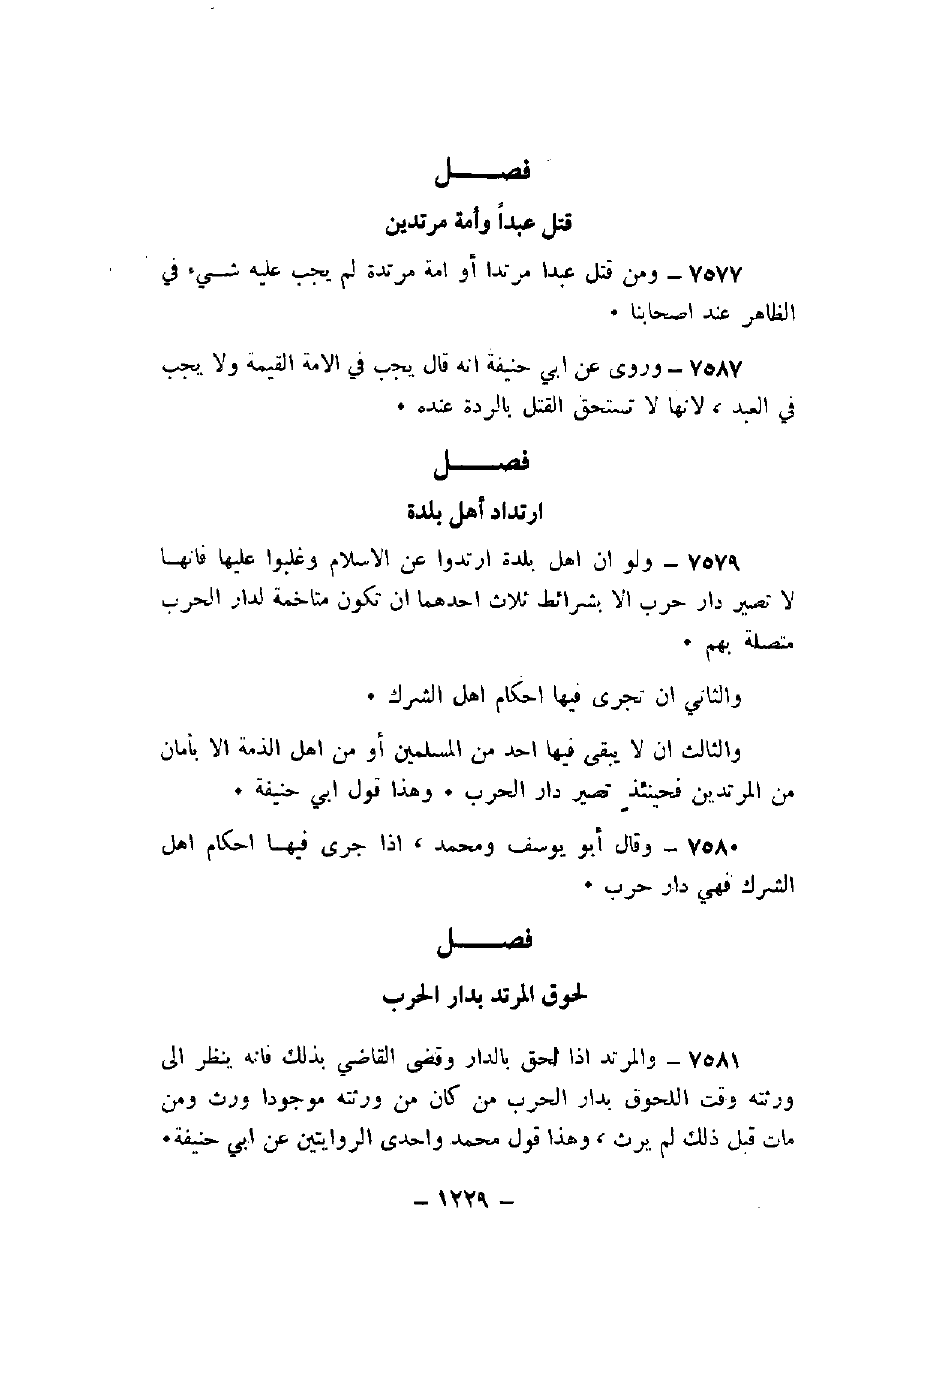 فصـــــل
قتل عبداً وأمة مرتدين
٧٥٧٧ – ومن قتل عبدا مرتدا أو امة مرتدة لم يجب عليه شــيء في
الظاهر عند اصحابنا •
٧٥٨٧ – وروى عن ابي حنيفة انه قال يجب في الامة القيمة ولا يجب
في العبد ، لانها لا تستحق القتل بالردة عنده •
فصـــــل
ارتداد أهل بلدة
٧٥٧٩ – ولو ان اهل بلدة ارتدوا عن الاسلام وغلبوا عليها فانهــا
لا تصير دار حرب الا بشرائط ثلاث احدهما ان تكون متاخمة لدار الحرب
متصلة بهم •
والثاني ان تجرى فيها احكام اهل الشرك •
والثالث ان لا يبقى فيها احد من المسلمين أو من اهل الذمة الا بأمان
من المرتدين فحينئذٍ تصير دار الحرب • وهذا قول ابي حنيفة •
٧٥٨٠ – وقال أبو يوسف ومحمد ، اذا جرى فيهــا احكام اهل
الشرك فهي دار حرب •
فصـــــل
لحوق المرتد بدار الحرب
٧٥٨١ – والمرتد اذا لحق بالدار وقضى القاضي بذلك فانه ينظر الى
ورثته وقت اللحوق بدار الحرب من كان من ورثته موجودا ورث ومن
مات قبل ذلك لم يرث ، وهذا قول محمد واحدى الروايتين عن ابي حنيفة•
– ١٢٢٩ –